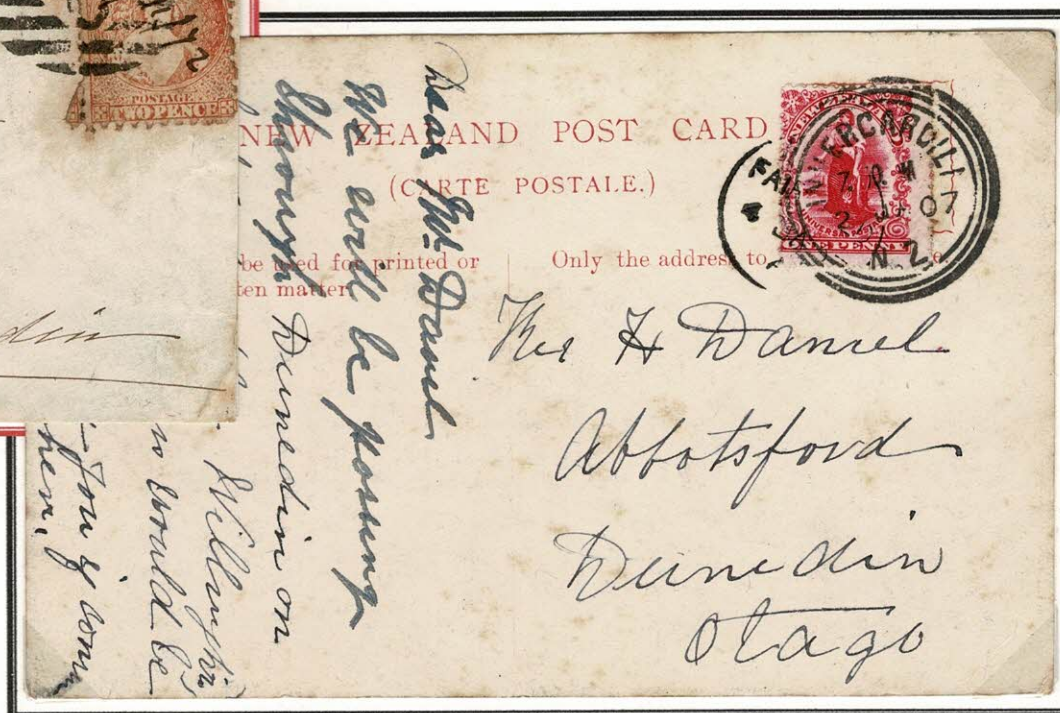 POSTAGE
TWO PENCE
din
NEW ZEALAND POST CARD
(CARTE POSTALE.)
be used for printed or
ten matter
Only the address to
INVERCARGILL
FAI
4
JA
7
2 07
N.Z
NEW
UNIVERSAL
NE PENNY
H Daniel
Abbotsford
Dunedin
Otago
Dear Mr Daniel
We will be passing
through Dunedin on
would be
you